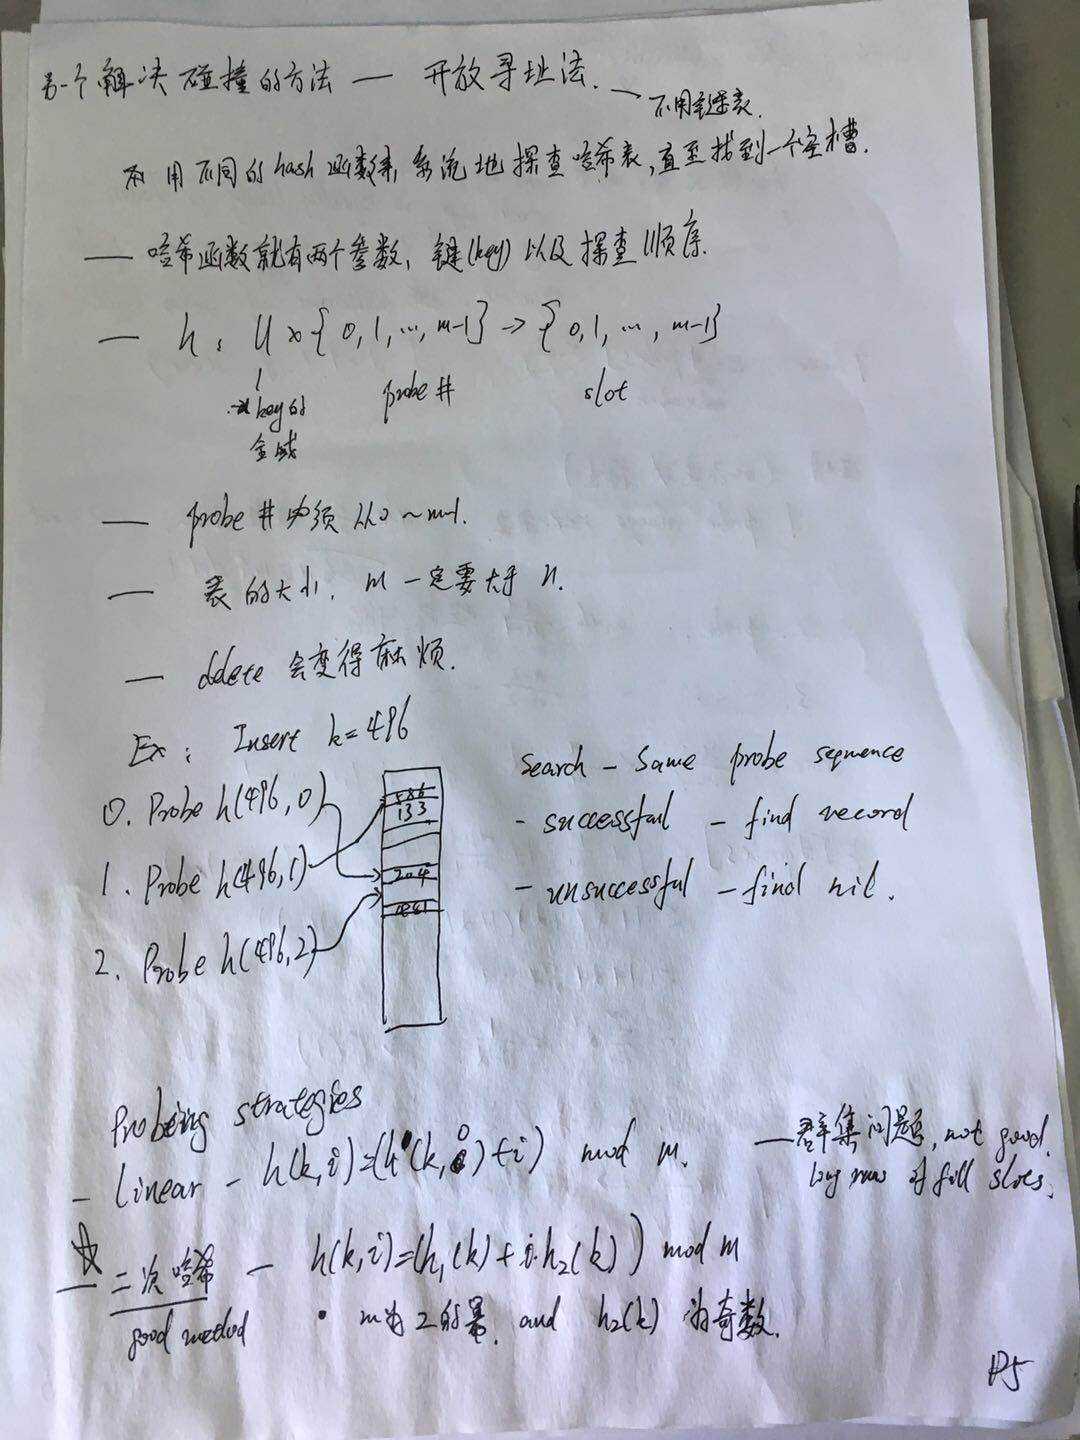 另一个解决碰撞的方法 — 开放寻址法. → 不用链表.
用不同的hash函数来系统地探查哈希表,直至找到一个空槽.
— 哈希函数就有两个参数, 键(key) 以及探查顺序.
— h: U × { 0, 1, ..., m-1} → { 0, 1, ..., m-1}
key的全域 probe # slot
— probe # 必须从0~m-1.
— 表的大小, m 一定要大于 n.
— delete 会变得麻烦.
Ex: Insert k=496
0. Probe h(496,0)
1. Probe h(496,1)
2. Probe h(496,2)
586
133
204
481
Search - Same probe sequence
- successful - find record
- unsuccessful - find nil.
Probeing strategies
- Linear - h(k,i)=(h(k,0)+i) mod m. — 群集问题, not good.
long runs of full slots.
☆ — 二次哈希 — h(k,i)=(h₁(k)+i·h₂(k)) mod m
good method • m为2的幂, and h₂(k) 为奇数.
P5